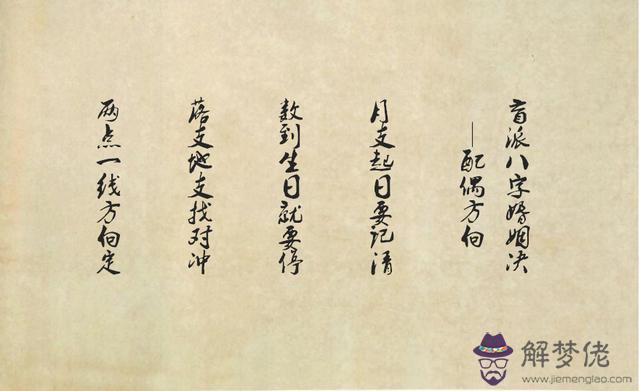 盲派八字婚姻决
—配偶方向
月支起日要记清
数到生日就要停
落支地支找对冲
两点一线方向定
解梦佬
www.jiemenglao.com